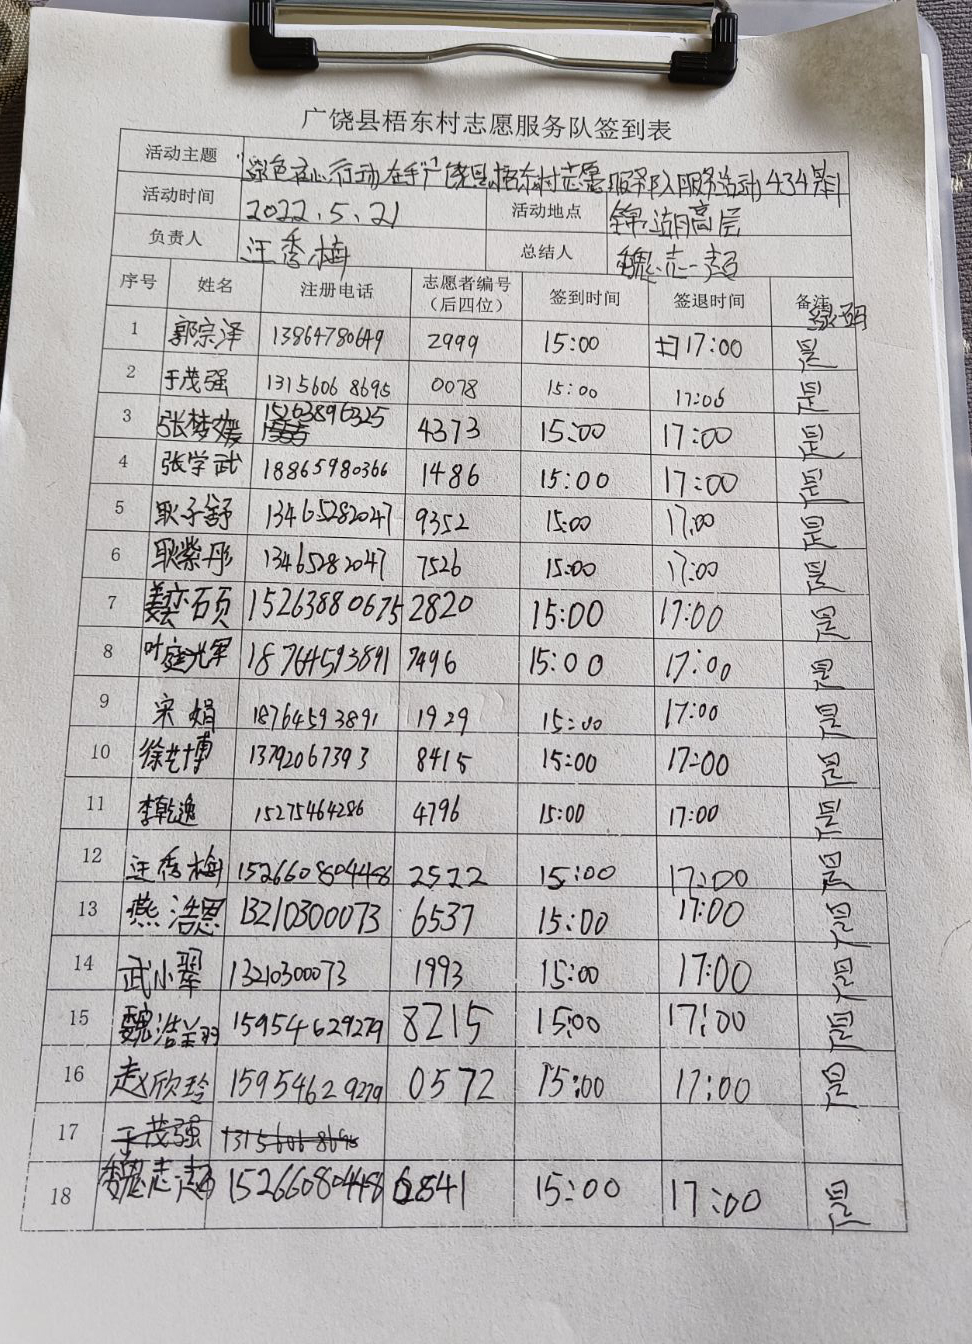 广饶县梧东村志愿服务队签到表
活动主题 行动在乎广饶县梧东村志愿服务队服务活动434期
活动时间 2022.5.21 活动地点 锦湖高层
负责人 汪秀梅 总结人 魏志超
序号 姓名 注册电话 志愿者编号（后四位） 签到时间 签退时间 备注 绿码
1 郭宗泽 13864780649 2999 15:00 17:00 是
2 于茂强 13156068695 0078 15:00 17:06 是
3 张梦媛 15263896325 4373 15:00 17:00 是
4 张学武 18865980366 1486 15:00 17:00 是
5 耿子舒 13465282047 9352 15:00 17:00 是
6 耿紫彤 13465282047 7526 15:00 17:00 是
7 姜奕石页 15263880675 2820 15:00 17:00 是
8 叶庭光军 18764593891 7496 15:00 17:00 是
9 宋娟 18764593891 1929 15:00 17:00 是
10 徐艺博 13792067393 8415 15:00 17:00 是
11 李乾逸 15275464286 4796 15:00 17:00 是
12 汪秀梅 152660804448 2522 15:00 17:00 是
13 燕浩恩 13210300073 6537 15:00 17:00 是
14 武小翠 13210300073 1993 15:00 17:00 是
15 魏浩翔 15954629279 8215 15:00 17:00 是
16 赵欣玲 15954629279 0572 15:00 17:00 是
17 于茂强 13156068695
18 魏志超 15266080448 6841 15:00 17:00 是